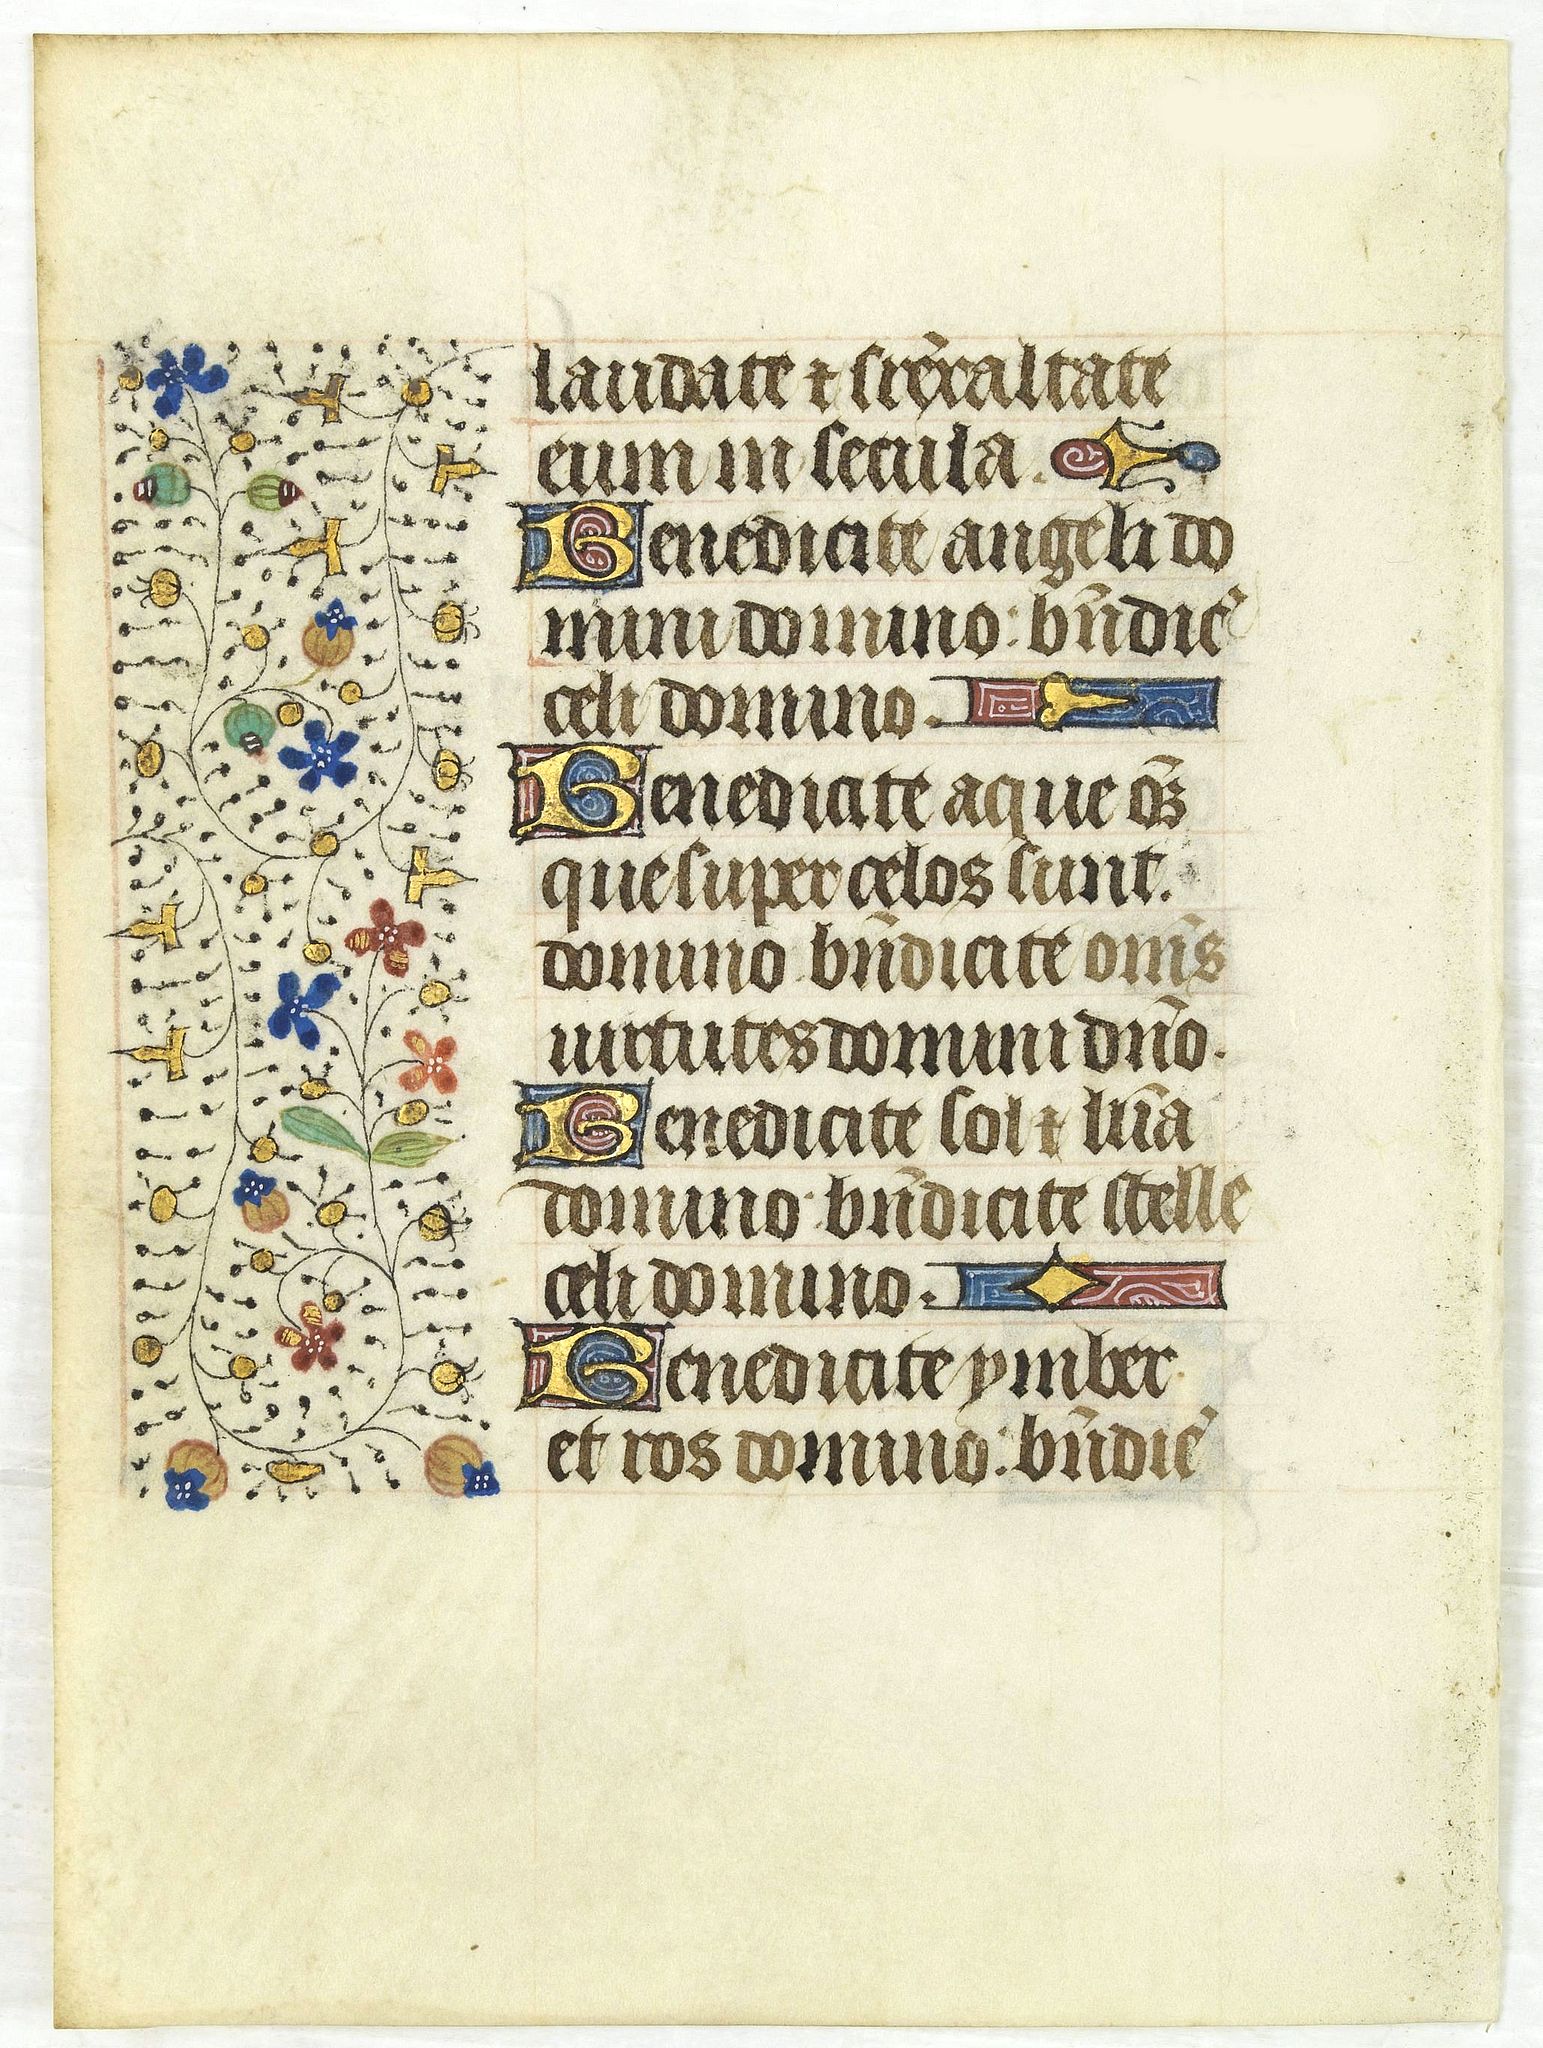 laudate ⁊ sup̄exaltate
eum in secula.
Benedicite angeli do
mini domino: bn̄dic̄
celi domino.
Benedicite aque om̄s
que super celos sunt.
domino bn̄dicite om̄s
uirtutes domini dn̄o.
Benedicite sol ⁊ lūa
domino: bn̄dicite stelle
celi domino.
Benedicite ymber
et ros domino: bn̄dic̄